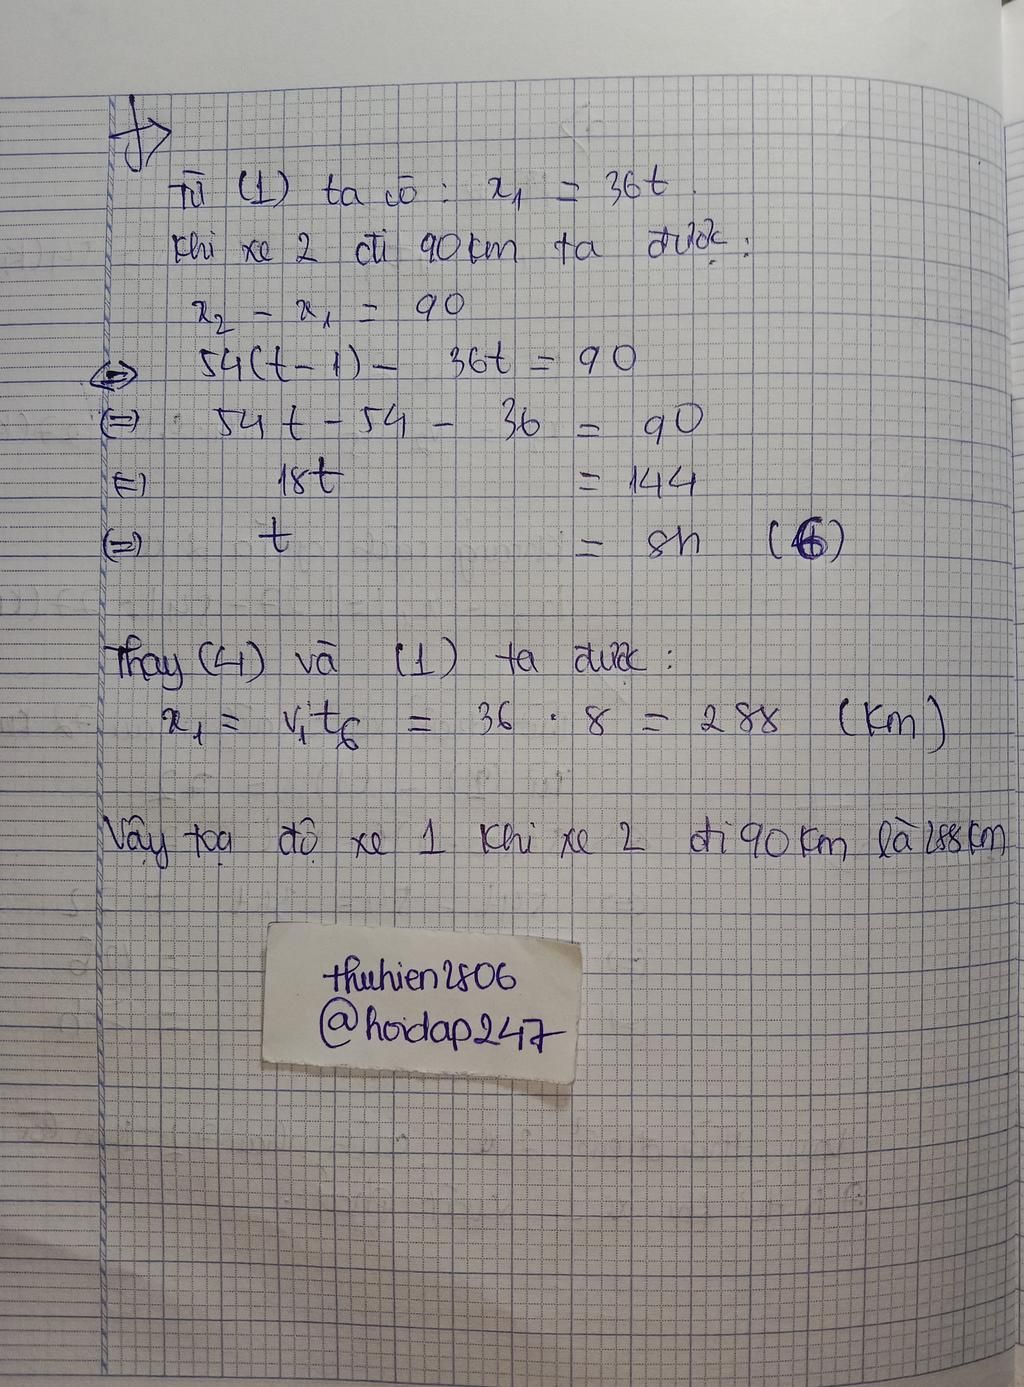 f>
Từ (1) ta có: x₁ = 36t.
Khi xe 2 đi 90km ta được:
x₂ - x₁ = 90
<=> 54(t-1) - 36t = 90
(=) 54t - 54 - 36 = 90
(=) 18t = 144
(=) t = 8h (6)
Thay (4) và (1) ta được:
x₁ = v₁t₆ = 36 . 8 = 288 (km)
Vậy tọa độ xe 1 khi xe 2 đi 90km là 288km
thuhien2806
@hoidap247